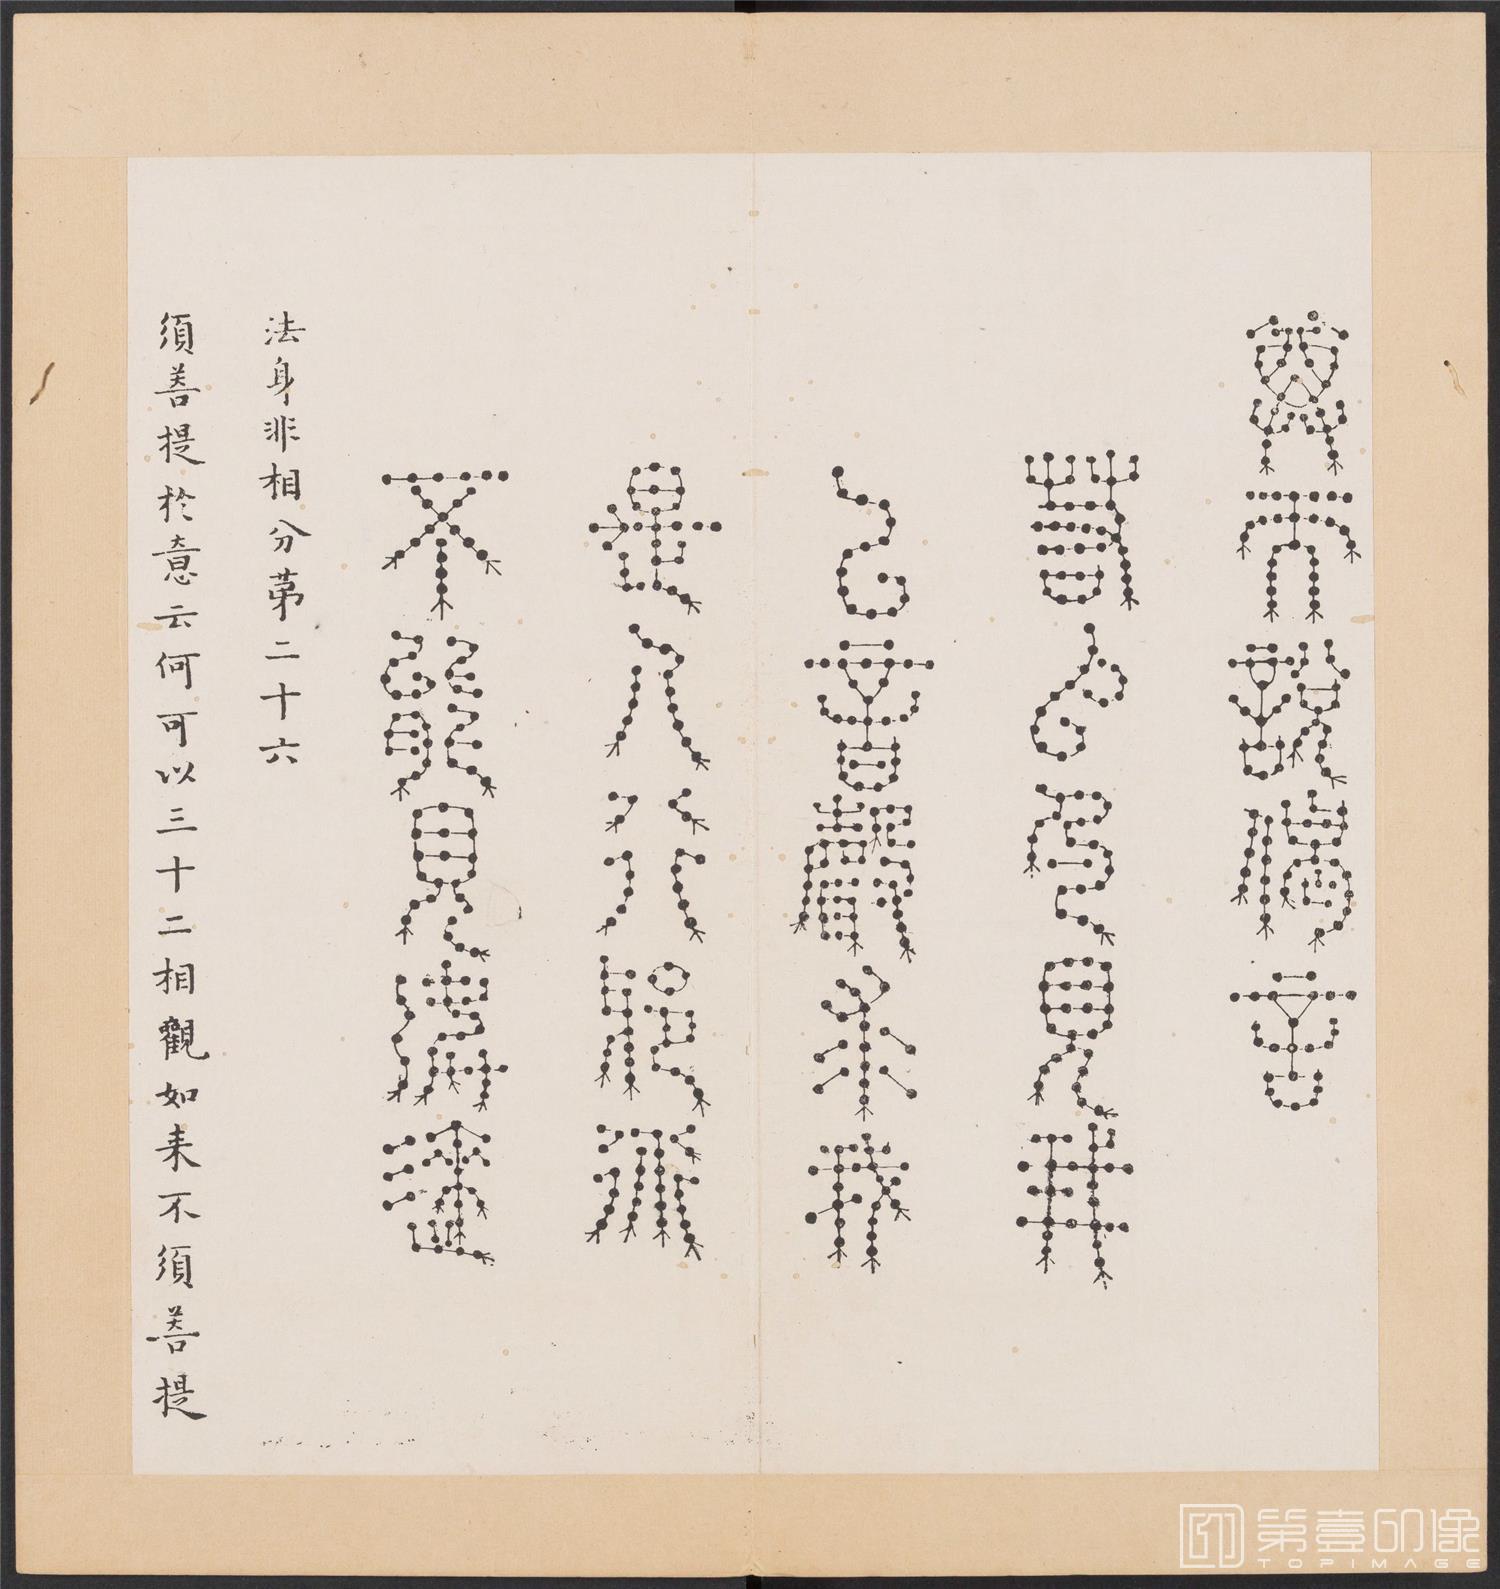 尊而說偈言
若以色見我
以音聲求我
是人行邪道
不能見如來
法身非相分苐二十六
須菩提於意云何可以三十二相觀如来不須菩提
第壹印像
TOPIMAGE